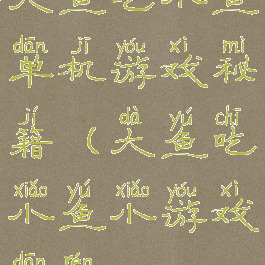 大鱼吃小鱼
dān jī yóu xì mì
单机游戏秘
jí dà yú chī
籍(大鱼吃
xiǎo yú xiǎo yóu xì
小鱼小游戏
dān rén